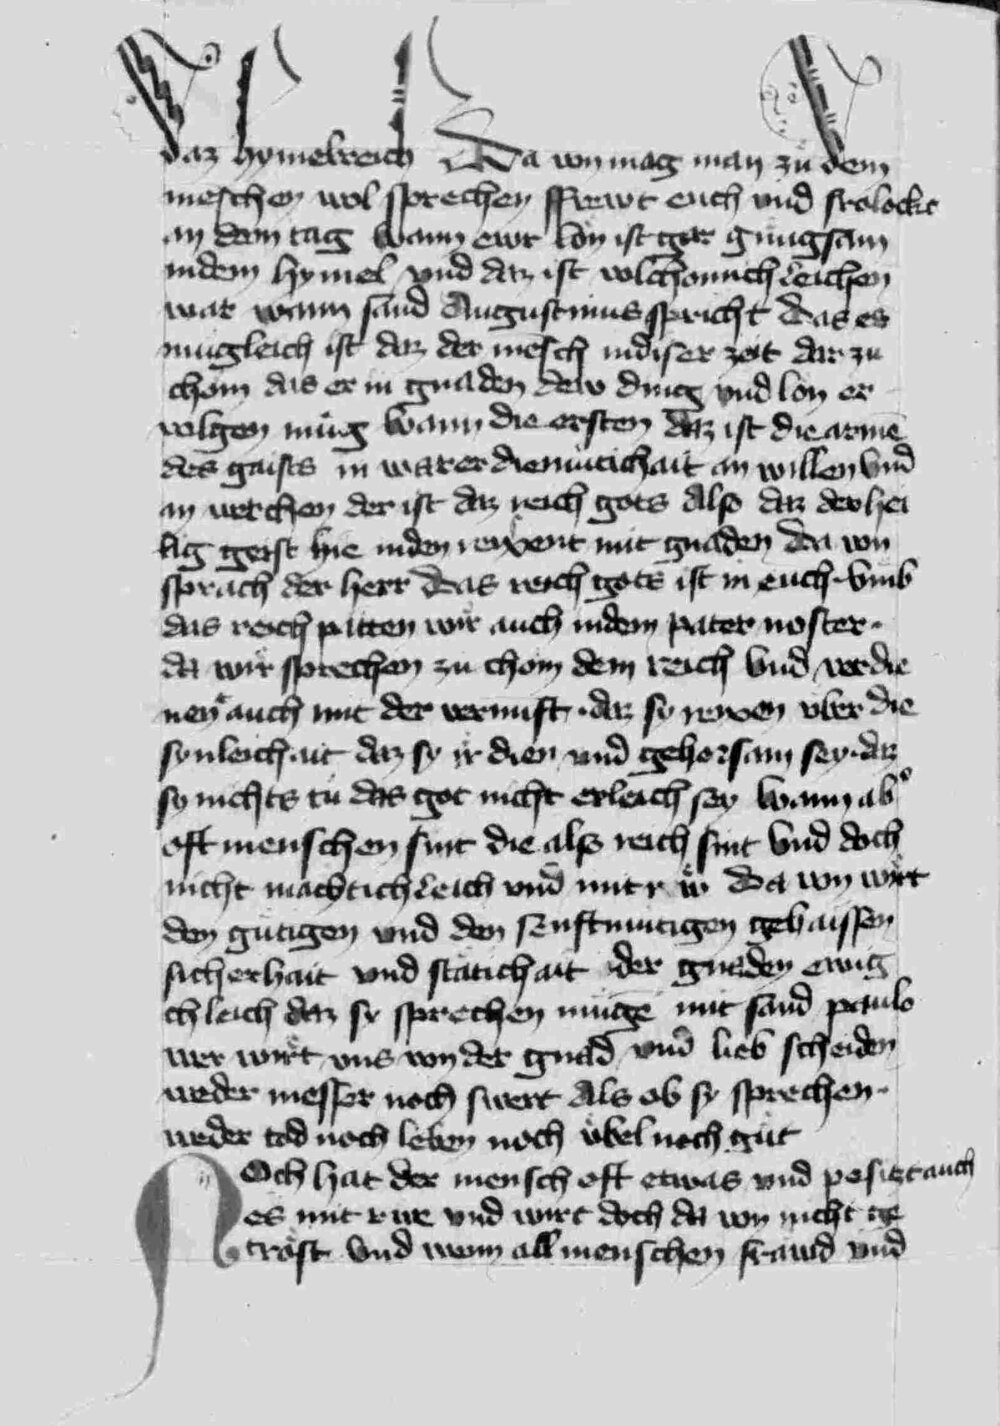 daz hymelreich Da von mag man zu dem
meschen wol sprechen ffrewt euch vnd frolockt
an dem tag wann ewr lon ist gar gnugsam
indem hymel vnd daz ist volchomichleichen
war wann sand Augustinus spricht das es
mugleich ist daz der mensch indiser zeit dar zu
chom das er in gnaden dew ding vnd lon er
volgen mug wann die ersten daz ist die armē
des gaists in warer diemutichait an willen vnd
an werchen der ist daz reich gots Also daz der hei
lig geist hie inden reyxent mit gnaden Da von
sprach der herr das reich gots ist in euch vmb
das reich pitten wir auch indem pater noster
da wir sprechen zu chom dem reich vnd verdie
nen auch mit der vernuft daz sy reyxen vber die
synleichait daz sy ir dien vnd gehorsam sey daz
sy nichts tu das got nicht erleich sey wann ab
oft menschen sint die also reich sint vnd doch
nicht mächtichleich vnd mit rẅ Da von wirt
den gutigen vnd den senftmutigen gehaissen
sicherhait vnd statichait der gnaden ewig
chleich daz sy sprechen mugē mit sand paulo
wer wirt vns von der gnad vnd lieb scheiden
weder messer noch swert Als ob sy sprechen
weder tod noch leben noch vbel noch gut
Noch hat der mensch oft etwas vnd positzt auch
es mit rwe vnd wirt doch da von nicht ge
trost vnd wenn all menschen frawd vnd